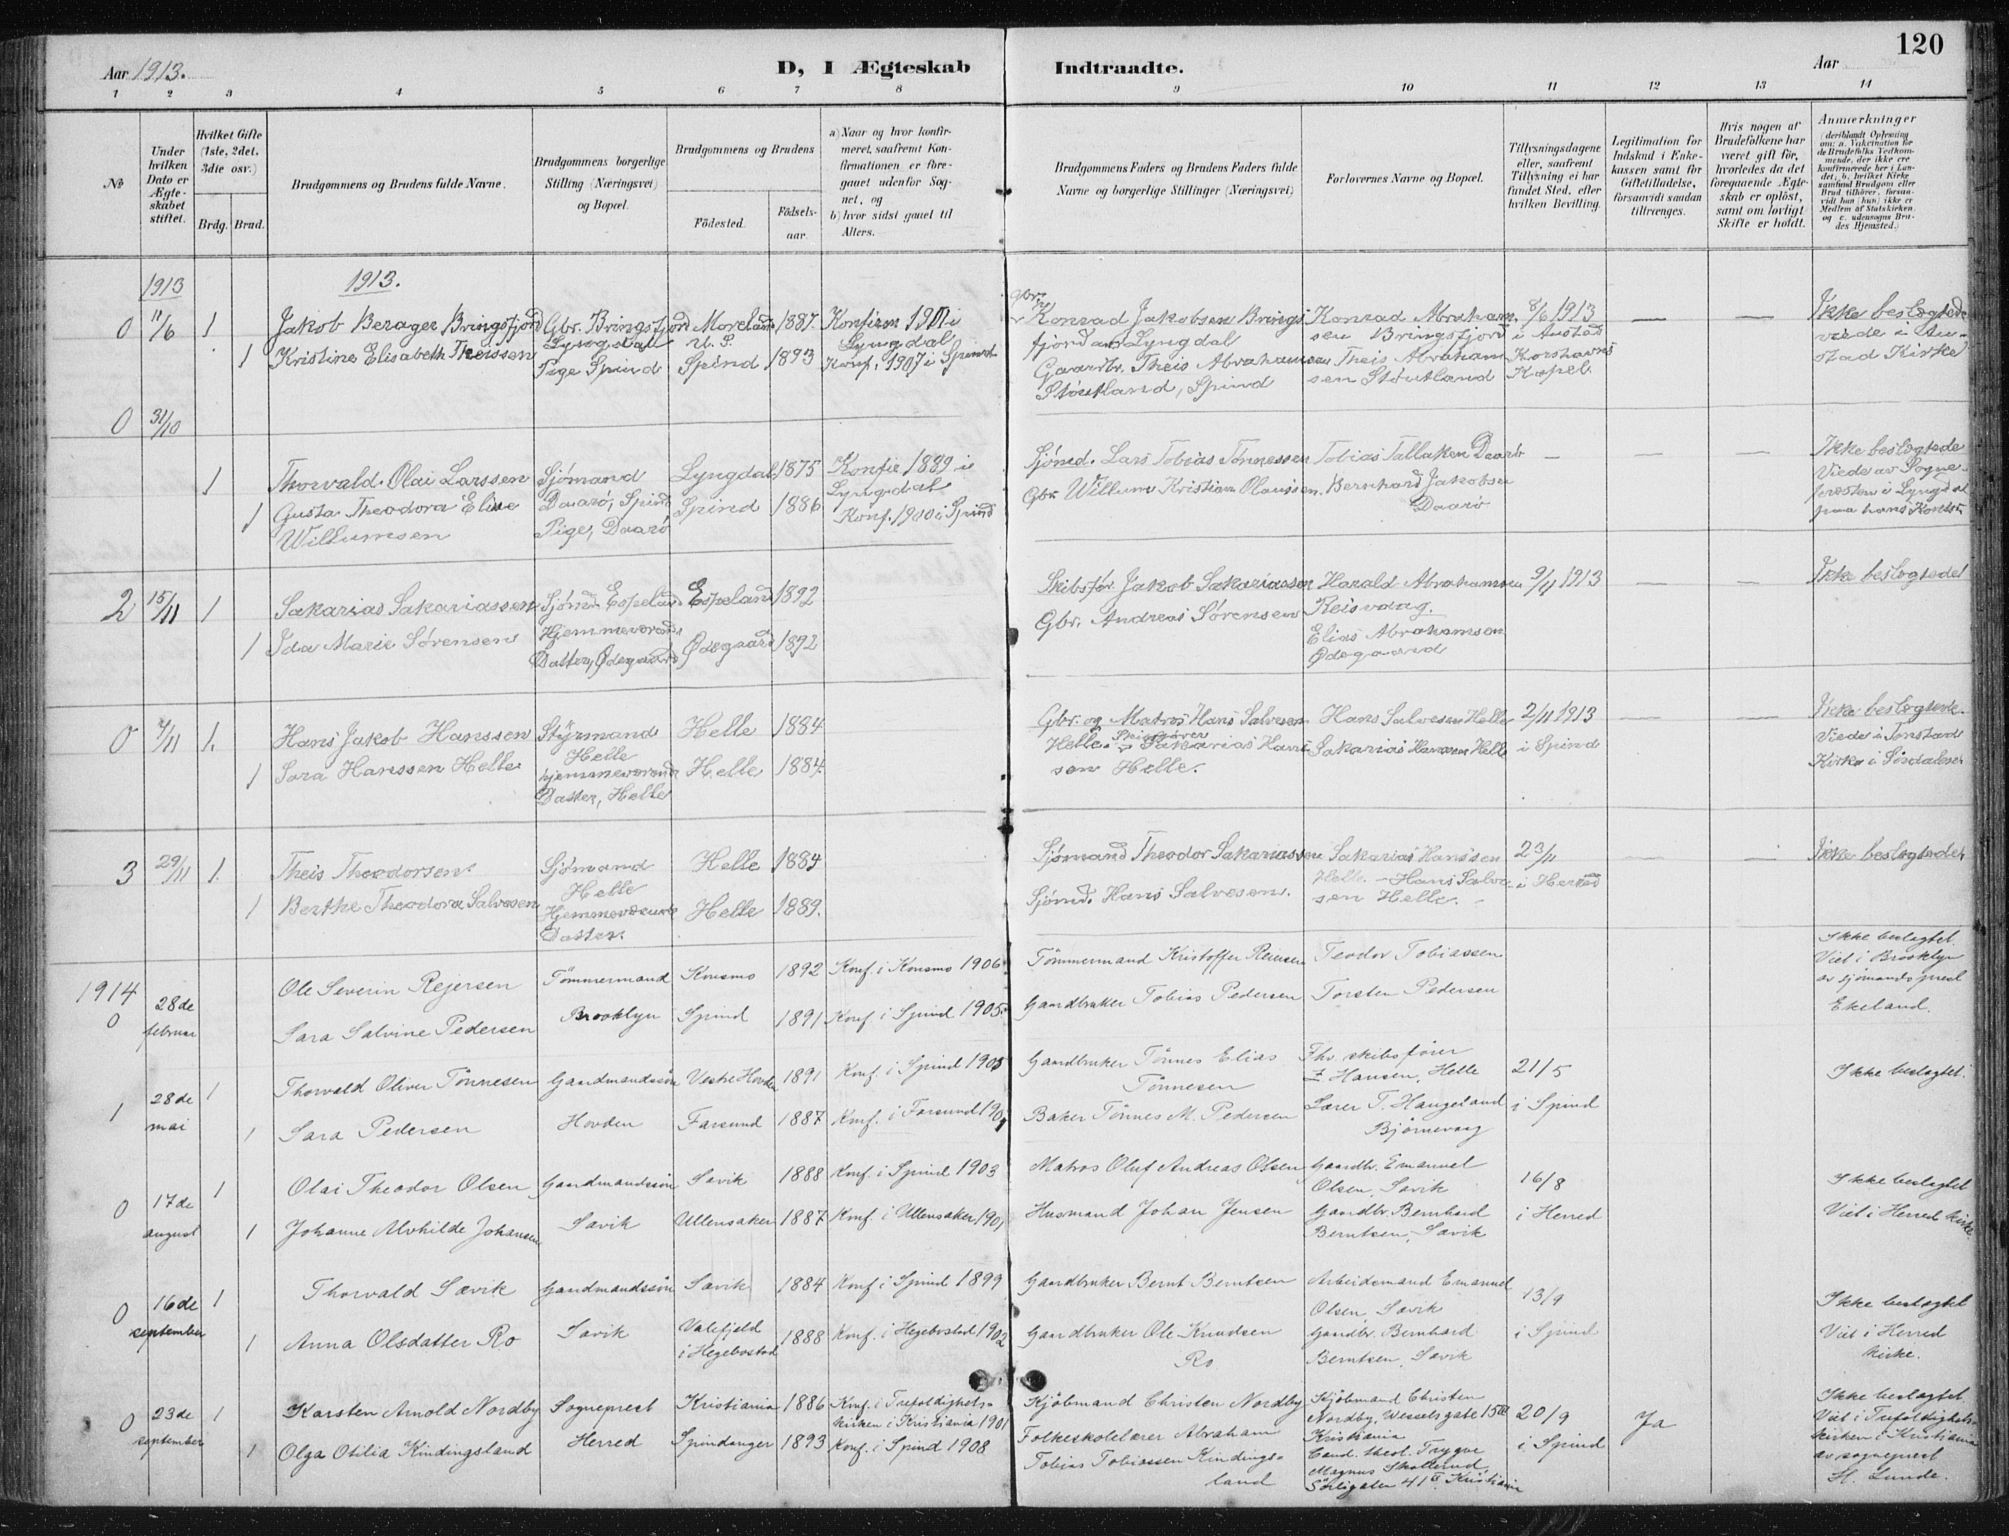 120
Aar 1913.
D, I Ægteskab Indtraadte.
Aar
1 2 3 4 5 6 7 8 9 10 11 12 13 14
No
Under hvilken Dato er Ægteskabet stiftet.
Hvilket Gifte (1ste, 2det, 3die osv.)
Brdg. Brud.
Brudgommens og Brudens fulde Navne.
Brudgommens borgerlige Stilling (Næringsvei) og Bopæl.
Brudgommens og Brudens
Födested.
Födselsaar.
a) Naar og hvor konfirmeret, saafremt Konfirmationen er foregaaet udenfor Sognet, og
b) hvor sidst gaaet til Alters.
Brudgommens Faders og Brudens Faders fulde Navne og borgerlige Stillinger (Næringsvei)
Forlovernes Navne og Bopæl.
Tillysningsdagene eller, saafremt Tillysning ei har fundet Sted, efter hvilken Bevilling.
Legitimation for Indskud i Enkekassen samt for Giftetilladelse, forsaavidt saadan tiltrænges.
Hvis nogen af Brudefolkene har været gift för, hvorledes da det foregaaende Ægteskab er oplöst, samt om lovligt Skifte er holdt.
Anmærkninger
1913
1913.
0 11/6 1 Jakob Berager Bringsfjord Gbr. Bringsfjord 1887. Konfirm 1901 i Lyngdal
Konrad Jakobsen Bringsfjord Lyngdal
Konrad Abrahamsen Bringsfjord
8/6 1913 i Austad
Ikke beslægtede viede i Austad Kirke
1 Kristine Elisabeth Theissen Pige Spind Spind 1893 Konf. 1907 i Spind
Gaardbr. Theis Abrahamsen Støutland, Spind
Theis Abrahamsen Støutland
Korshavns Kapel.
0 31/10
1 Thorvald Olai Larssen Sjømand Daarø, Spind Lyngdal 1875 Konfir 1889 i Lyngdal
Sjømd. Lars Tobias Tønnessen Tobias Tallaksen Daarø
Ikke beslægtede Viede av Sognepresten i Lyngdal paa hans Kontor
1 Gusta Theodora Elise Willumsen Pige, Daarø Spind 1886 Konf. 1900 i Spind
Gbr. Willum Kristian Olaussen. Bernhard Jakobsen Daarø
2 15/11 1 Sakarias Sakariassen Sjømd. Espeland Espeland 1892
Skibsfør. Jakob Sakariassen Harald Abrahamsen Reisvaag.
9/11 1913
Ikke beslægtede
1 Ida Marie Sørensen Hjemmeværende Datter, Ødegaard Ødegaard 1892
Gbr. Andreas Sørensen Elias Abrahamsen Ødegaard
0 7/11 1. Hans Jakob Hanssen Styrmand Helle Helle 1884
Gbr. og Matros Hans Salvesen Helle. Hans Salvesen Helle
2/11 1913 i Spind
Ikke beslægtede. Viede i Tonstad Kirke i Sirdalen
1 Sara Hanssen Helle hjemmeværende Datter, Helle Helle 1884.
Sakarias Hanssen Helle. Sakarias Hanssen Helle
3 29/11 1. Theis Theodorsen. Sjømand Helle Helle 1884
Sjømand Theodor Sakariassen Sakarias Hanssen Helle.
23/11 i Herred
Ikke beslægtede
1 Berthe Theodora Salvesen Hjemmeværende Datter. Helle 1889.
Sjømd. Hans Salvesen. Hans Salvesen Helle.
1914
0 28de februar Ole Severin Rejersen Tömmermand Konsmo 1892 Konf. i Konsmo 1906
Tömmermand Kristoffer Reiersen Teodor Tobiassen
Ikke beslegtet. Viet i Brooklyn av sjömandsprest Ekeland.
Sara Salvine Pedersen Brooklyn Spind 1891 Konf. i Spind 1905.
Gaardbruker Tobias Pedersen Torsten Pedersen
1 28de mai 1 Thorvald Oliver Tönnesen Gaardmandssön Vestre Hovden 1891 Konf. i Spind 1905
Gaardbruker Tönnes Elias Tönnesen Fhv. skibsförer Z. Hansen, Helle
21/5 i Spind
Ikke beslegtet.
1 Sara Pedersen Hovden Farsund 1887 Konf. i Farsund
Baker Tönnes M. Pedersen Lærer T. Haugeland Björnevaag
0 17de august 1 Olai Theodor Olsen Gaardmandssön Sævik 1888 Konf. i Spind 1903
Matros Oluf Andreas Olsen Gaardbr. Emanuel Olsen, Sævik
16/8 i Herred
Ikke beslegtet Viet i Herred kirke.
1 Johanne Alvhilde Johansen Sævik Ullensaker 1887 Konf. i Ullensaker 1901
Husmand Johan Jensen Gaardbr. Bernhard Berntsen, Sævik
0 16de september 1 Thorvald Sævik Gaardmandssön Sævik 1884 Konf. i Spind 1899
Gaardbruker Bernt Berntsen Arbeidsmand Emanuel Olsen, Sævik
13/9 i Spind
Ikke beslegtet Viet i Herred kirke.
1 Anna Olsdatter Ro Sævik Valefjeld i Hegebostad 1888 Konf. i Hegebostad 1902
Gaardbruker Ole Knudsen Ro Gaardbr. Bernhard Berntsen, Sævik
0 23de september 1 Karsten Arnold Nordby Sogneprest Kristiania 1886 Konf. i Trefoldighetskirken i Kristiania 1901
Kjöbmand Christen Nordby Kjöbmand Christen Nordby, Wesselsgate 15 III Kristiania
20/9 i Spind
Ja
Ikke beslegtet Viet i Trefoldighetskirken i Kristiania av sogneprest H. Lunde.
1 Olga Otilia Kindingsland Herred Spindanger 1893 Konf. i Spind 1908
Folkeskolelærer Abraham Tobias Tobiassen Kindingsland
Cand. theol. Trygve Magnus Skollerud Sörligaten 41 II. Kristiania